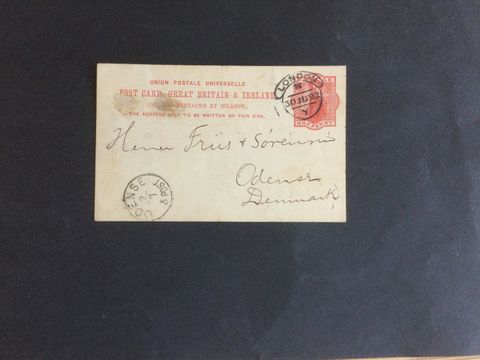 UNION POSTALE UNIVERSELLE
POST CARD. GREAT BRITAIN & IRELAND
(GRANDE BRETAGNE ET IRLANDE.)
THE ADDRESS ONLY TO BE WRITTEN ON THIS SIDE.
LONDON W
30 JU 92
Y
ONE PENNY
Herrer Friis & Sørensen
Odense
Denmark
ODENSE
2
7
3 POST